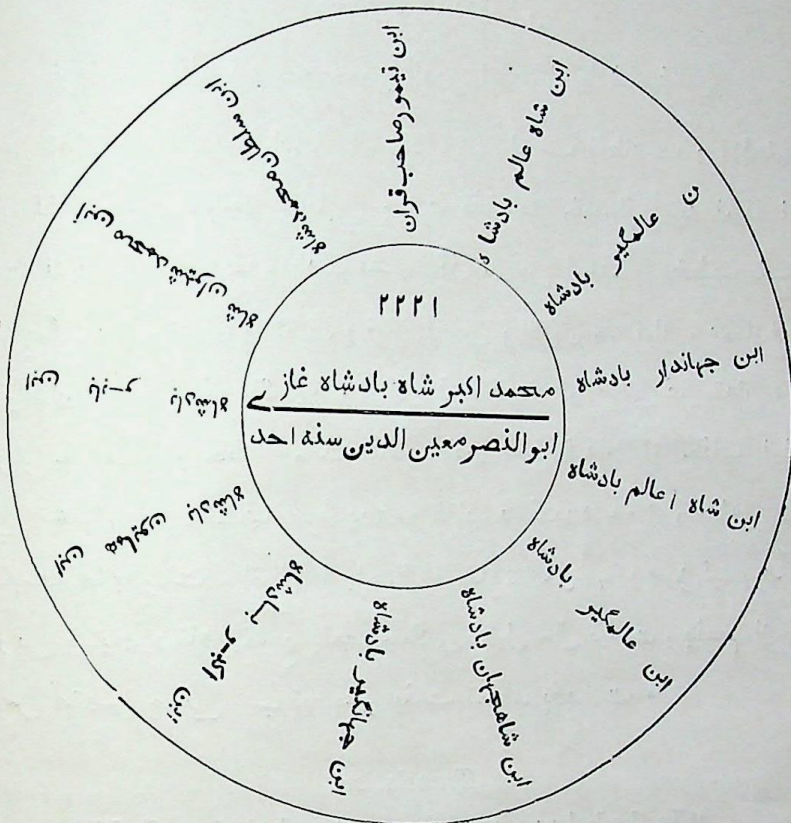 ۲۲۲۱
محمد اکبر شاه بادشاه غازے
ابو النصر معین الدین سنه احد
ابن شاه عالم بادشاه
ن عالمگیر بادشاه
ابن جهاندار بادشاه
ابن شاه اعالم بادشاه
ابن عالمگیر بادشاه
ابن شاهجهان بادشاه
ابن جهانگیر بادشاه
ابن اکبر بادشاه
ابن همایون بادشاه
ابن بابر بادشاه
ابن محمد شاه
ابن سلطان محمد شاه
ابن تیمور صاحب قران